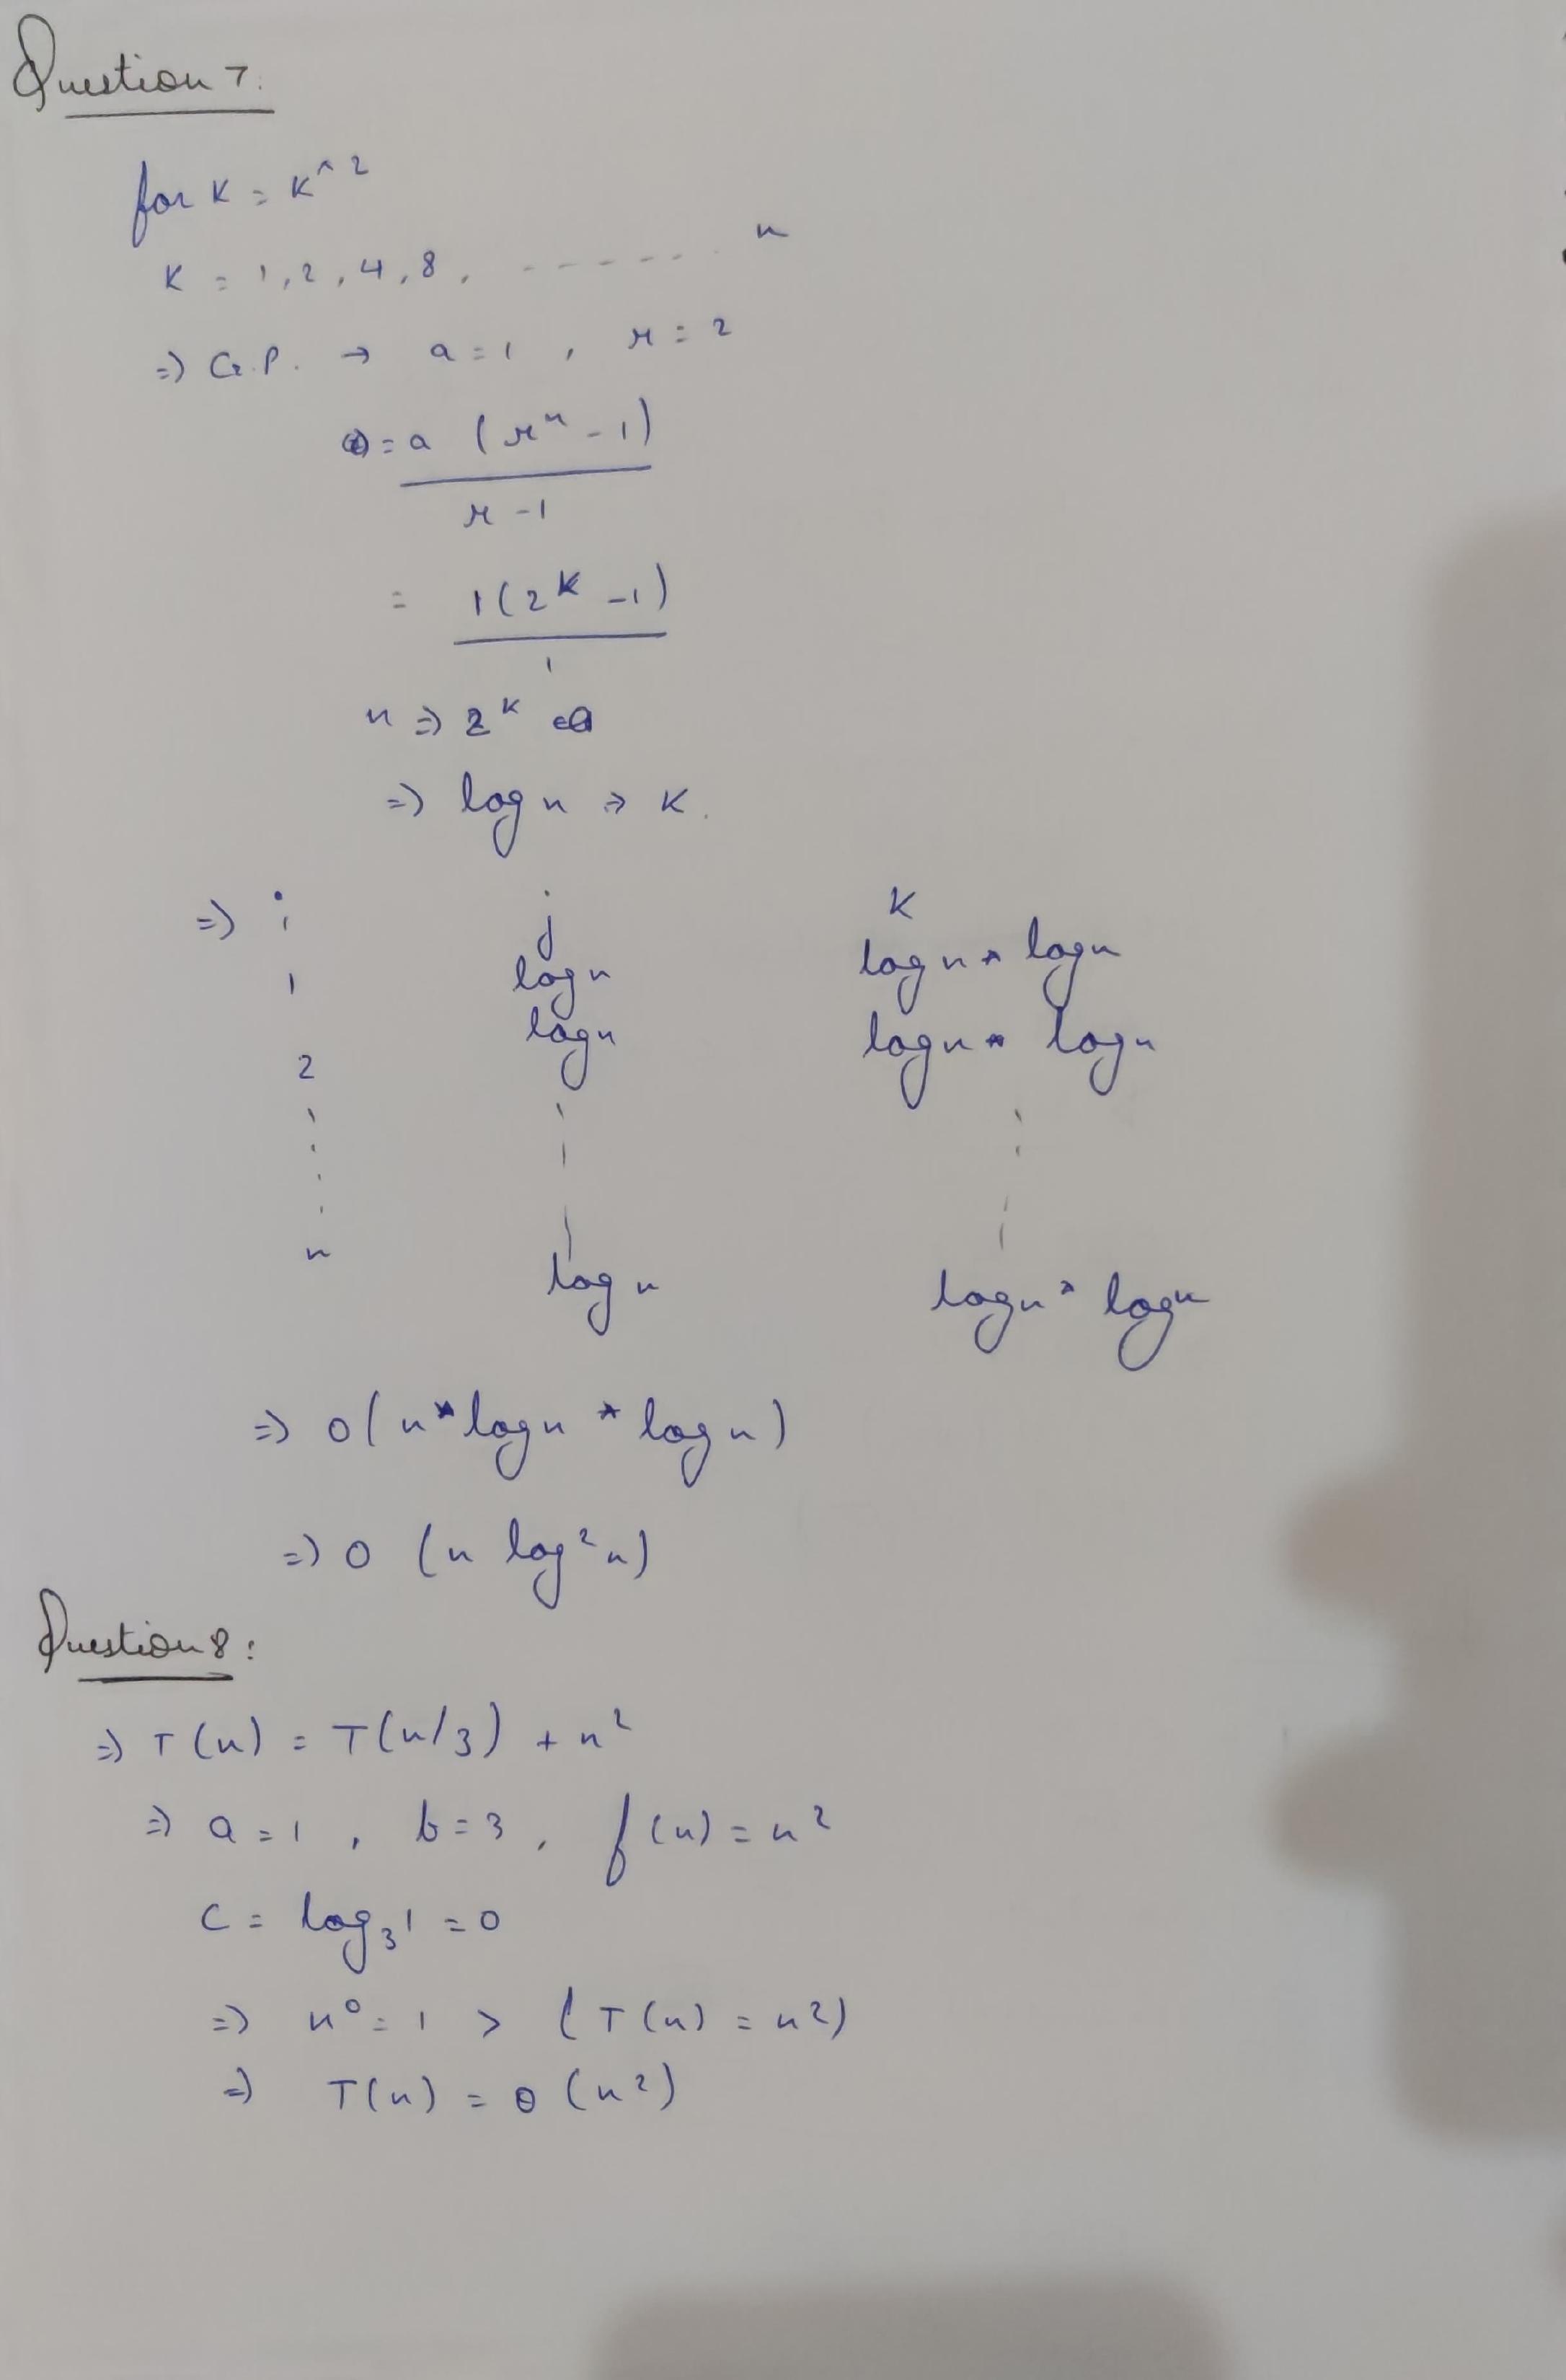 Question 7:
for K = K^2
K = 1, 2, 4, 8, ------ n
=> G.P. → a = 1, r = 2
= a (r^n - 1)
r - 1
= 1(2^K - 1)
1
n => 2^K
=> log n => K.
=> i j K
1 log n log n * log n
2 log n log n * log n
n log n log n * log n
=> O(n * log n * log n)
=> O (n log² n)
Question 8:
=> T(n) = T(n/3) + n²
=> a = 1, b = 3, f(n) = n²
C = log₃1 = 0
=> n⁰ = 1 > (T(n) = n²)
=> T(n) = θ (n²)